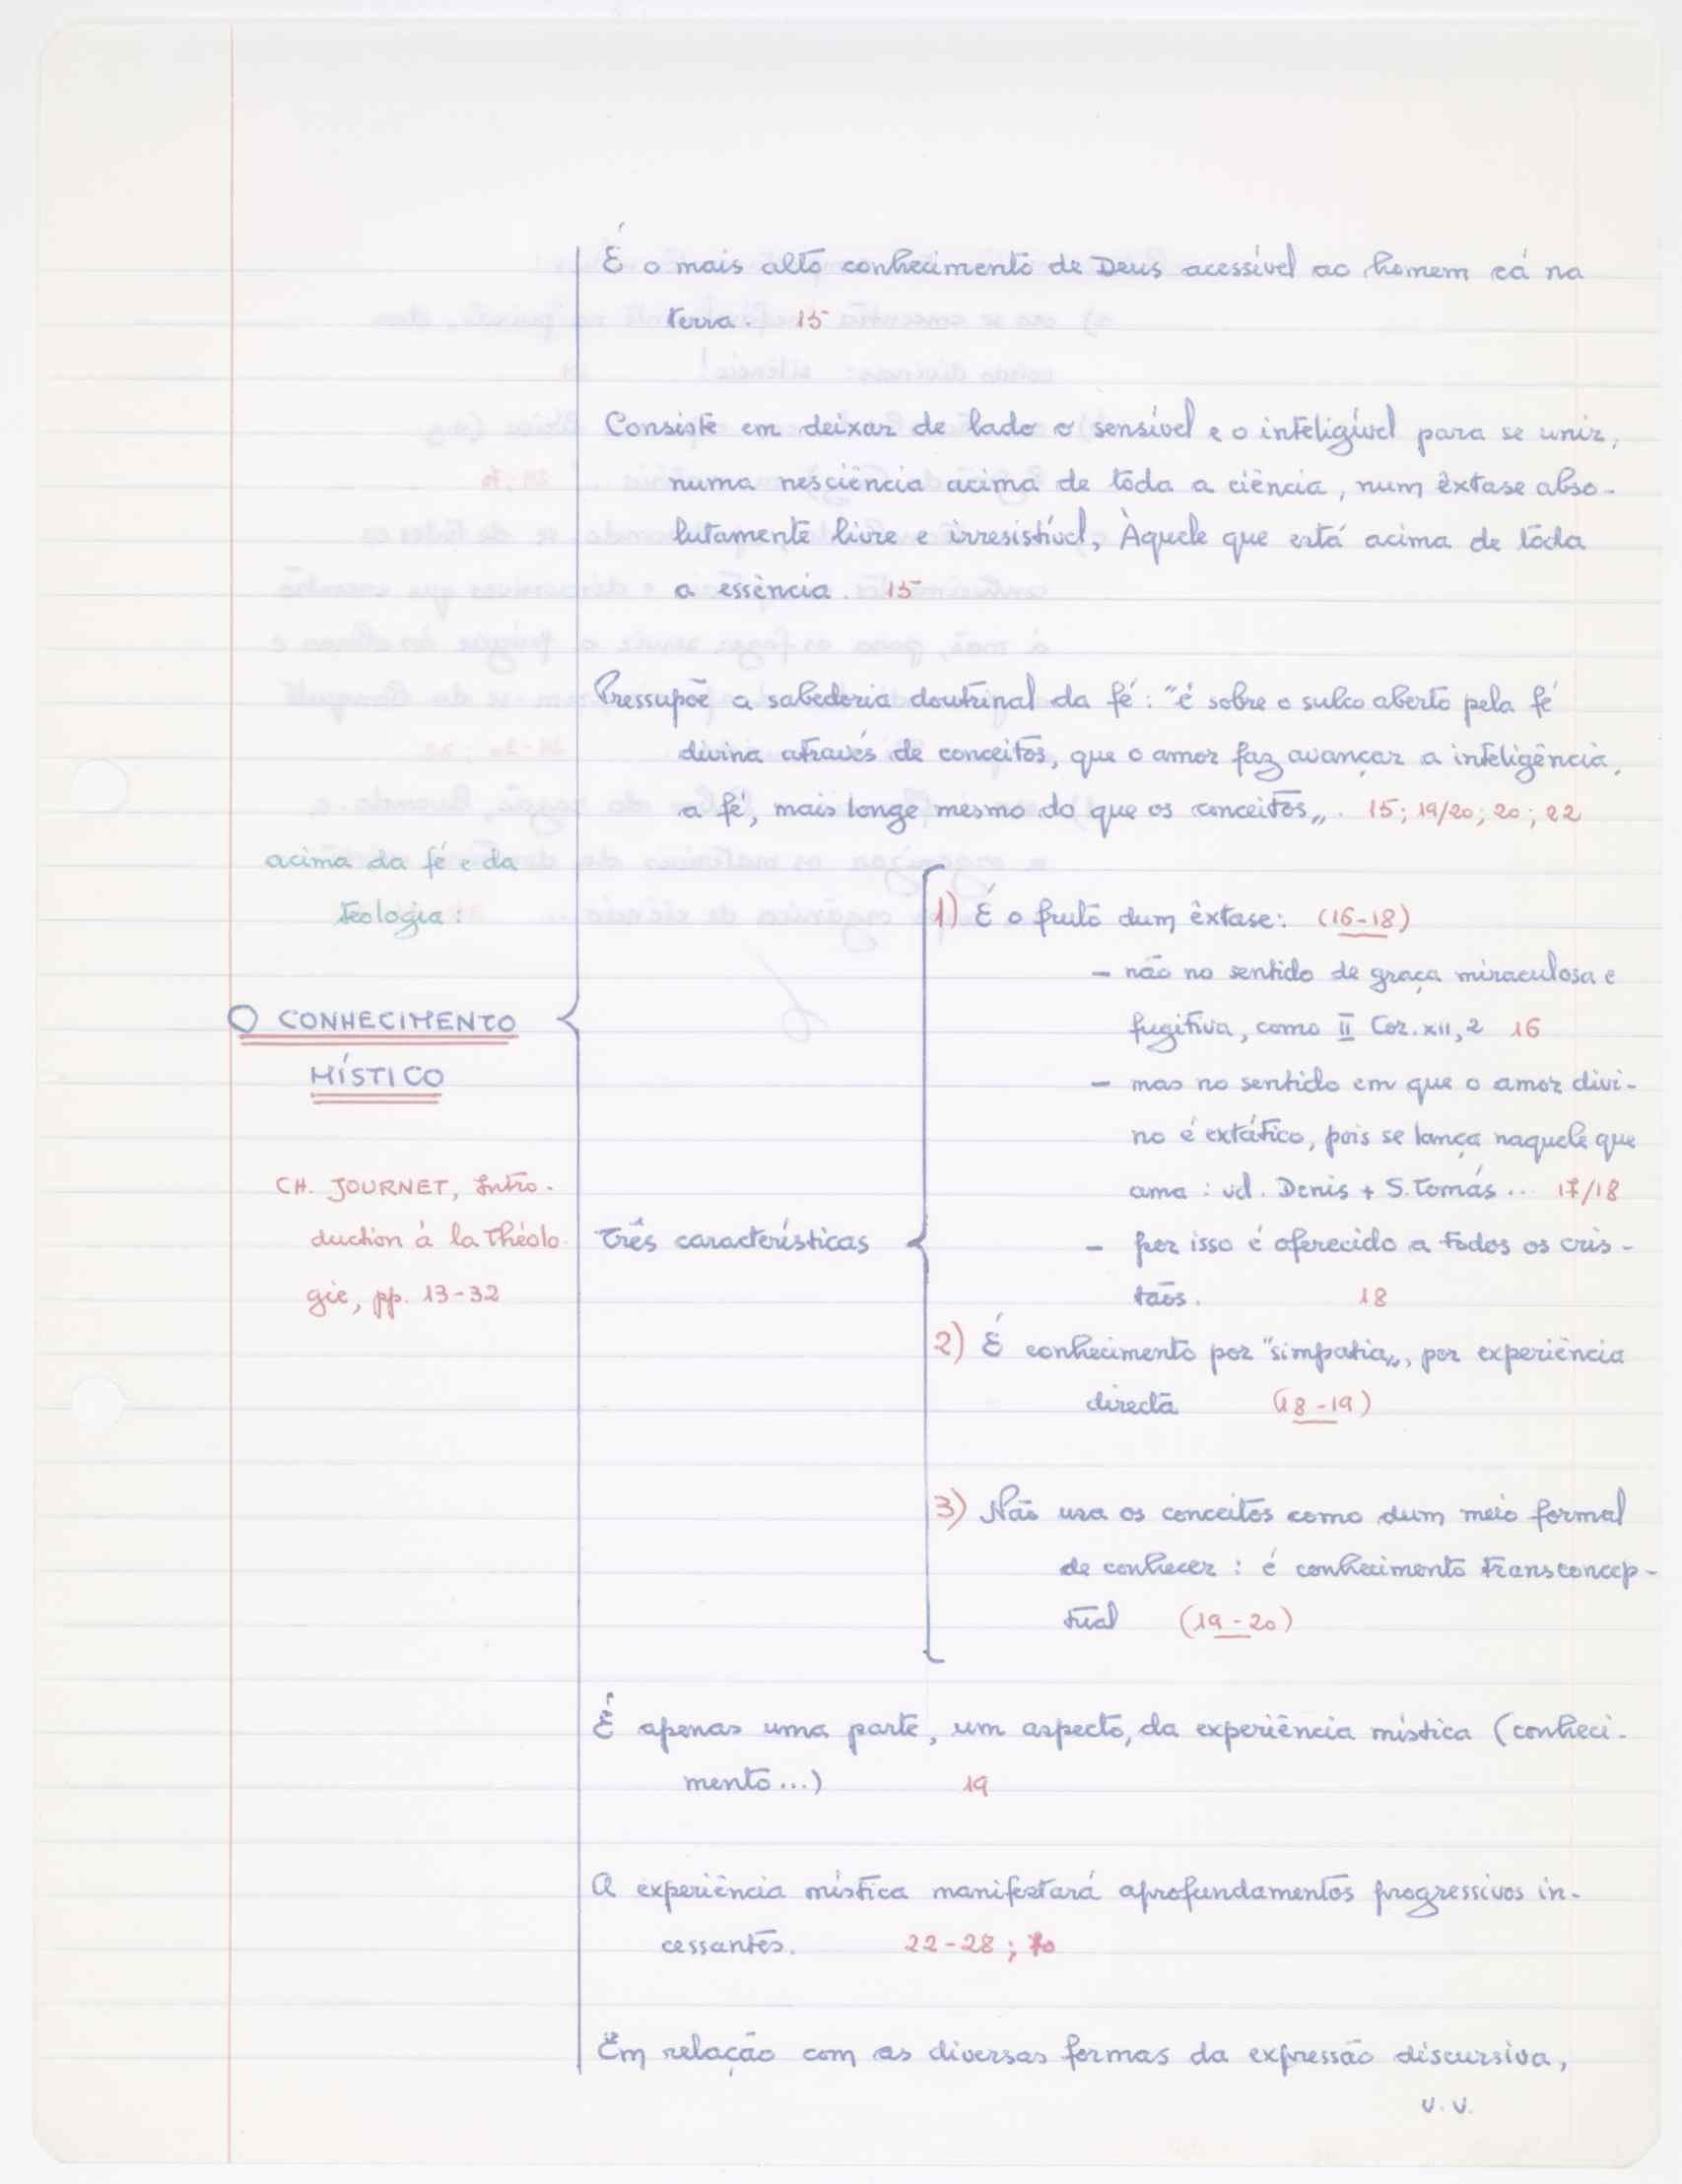 acima da fé e da
teologia:
O CONHECIMENTO
MÍSTICO
CH. JOURNET, Intro-
duction à la Théolo-
gie, pp. 13-32
É o mais alto conhecimento de Deus acessível ao homem cá na
terra. 15
Consiste em deixar de lado o sensível e o inteligível para se unir,
numa nesciência acima de tôda a ciência, num êxtase abso-
lutamente livre e irresistível, Àquele que está acima de tôda
a essência. 15
Pressupõe a sabedoria doutrinal da fé: "é sobre o sulco aberto pela fé
divina através de conceitos, que o amor faz avançar a inteligência,
a fé, mais longe mesmo do que os conceitos„. 15; 19/20; 20; 22
Três características
1) É o fruto dum êxtase: (16-18)
- não no sentido de graça miraculosa e
fugitiva, como II Cor. XII, 2 16
- mas no sentido em que o amor divi-
no é extático, pois se lança naquele que
ama: vd. Denis + S. Tomás... 17/18
- por isso é oferecido a todos os cris-
tãos. 18
2) É conhecimento por "simpatia„, por experiência
directa (18-19)
3) Não usa os conceitos como dum meio formal
de conhecer: é conhecimento transconcep-
tual (19-20)
É apenas uma parte, um aspecto, da experiência mística (conheci-
mento...) 19
A experiência mística manifestará aprofundamentos progressivos in-
cessantes. 22-28; 70
Em relação com as diversas formas da expressão discursiva,
v. v.